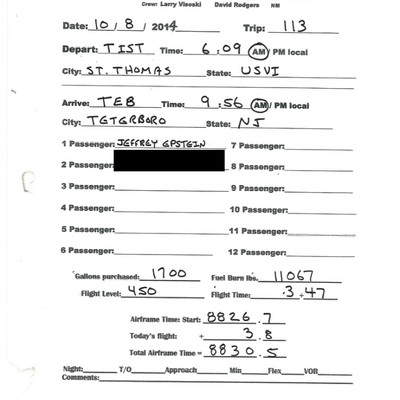 Crew: Larry Visoski David Rodgers NM
Date: 10/8/2014 Trip: 113
Depart: TIST Time: 6:09 AM/PM local
City: ST. THOMAS State: USVI
Arrive: TEB Time: 9:56 AM/PM local
City: TETERBORO State: NJ
1 Passenger: JEFFREY EPSTEIN 7 Passenger:
2 Passenger: 8 Passenger:
3 Passenger: 9 Passenger:
4 Passenger: 10 Passenger:
5 Passenger: 11 Passenger:
6 Passenger: 12 Passenger:
Gallons purchased: 1700 Fuel Burn lbs. 11067
Flight Level: 450 Flight Time: .3+47
Airframe Time: Start: 8826.7
Today's flight: + 3.8
Total Airframe Time = 8830.5
Night: T/O Approach Min Flex VOR
Comments: